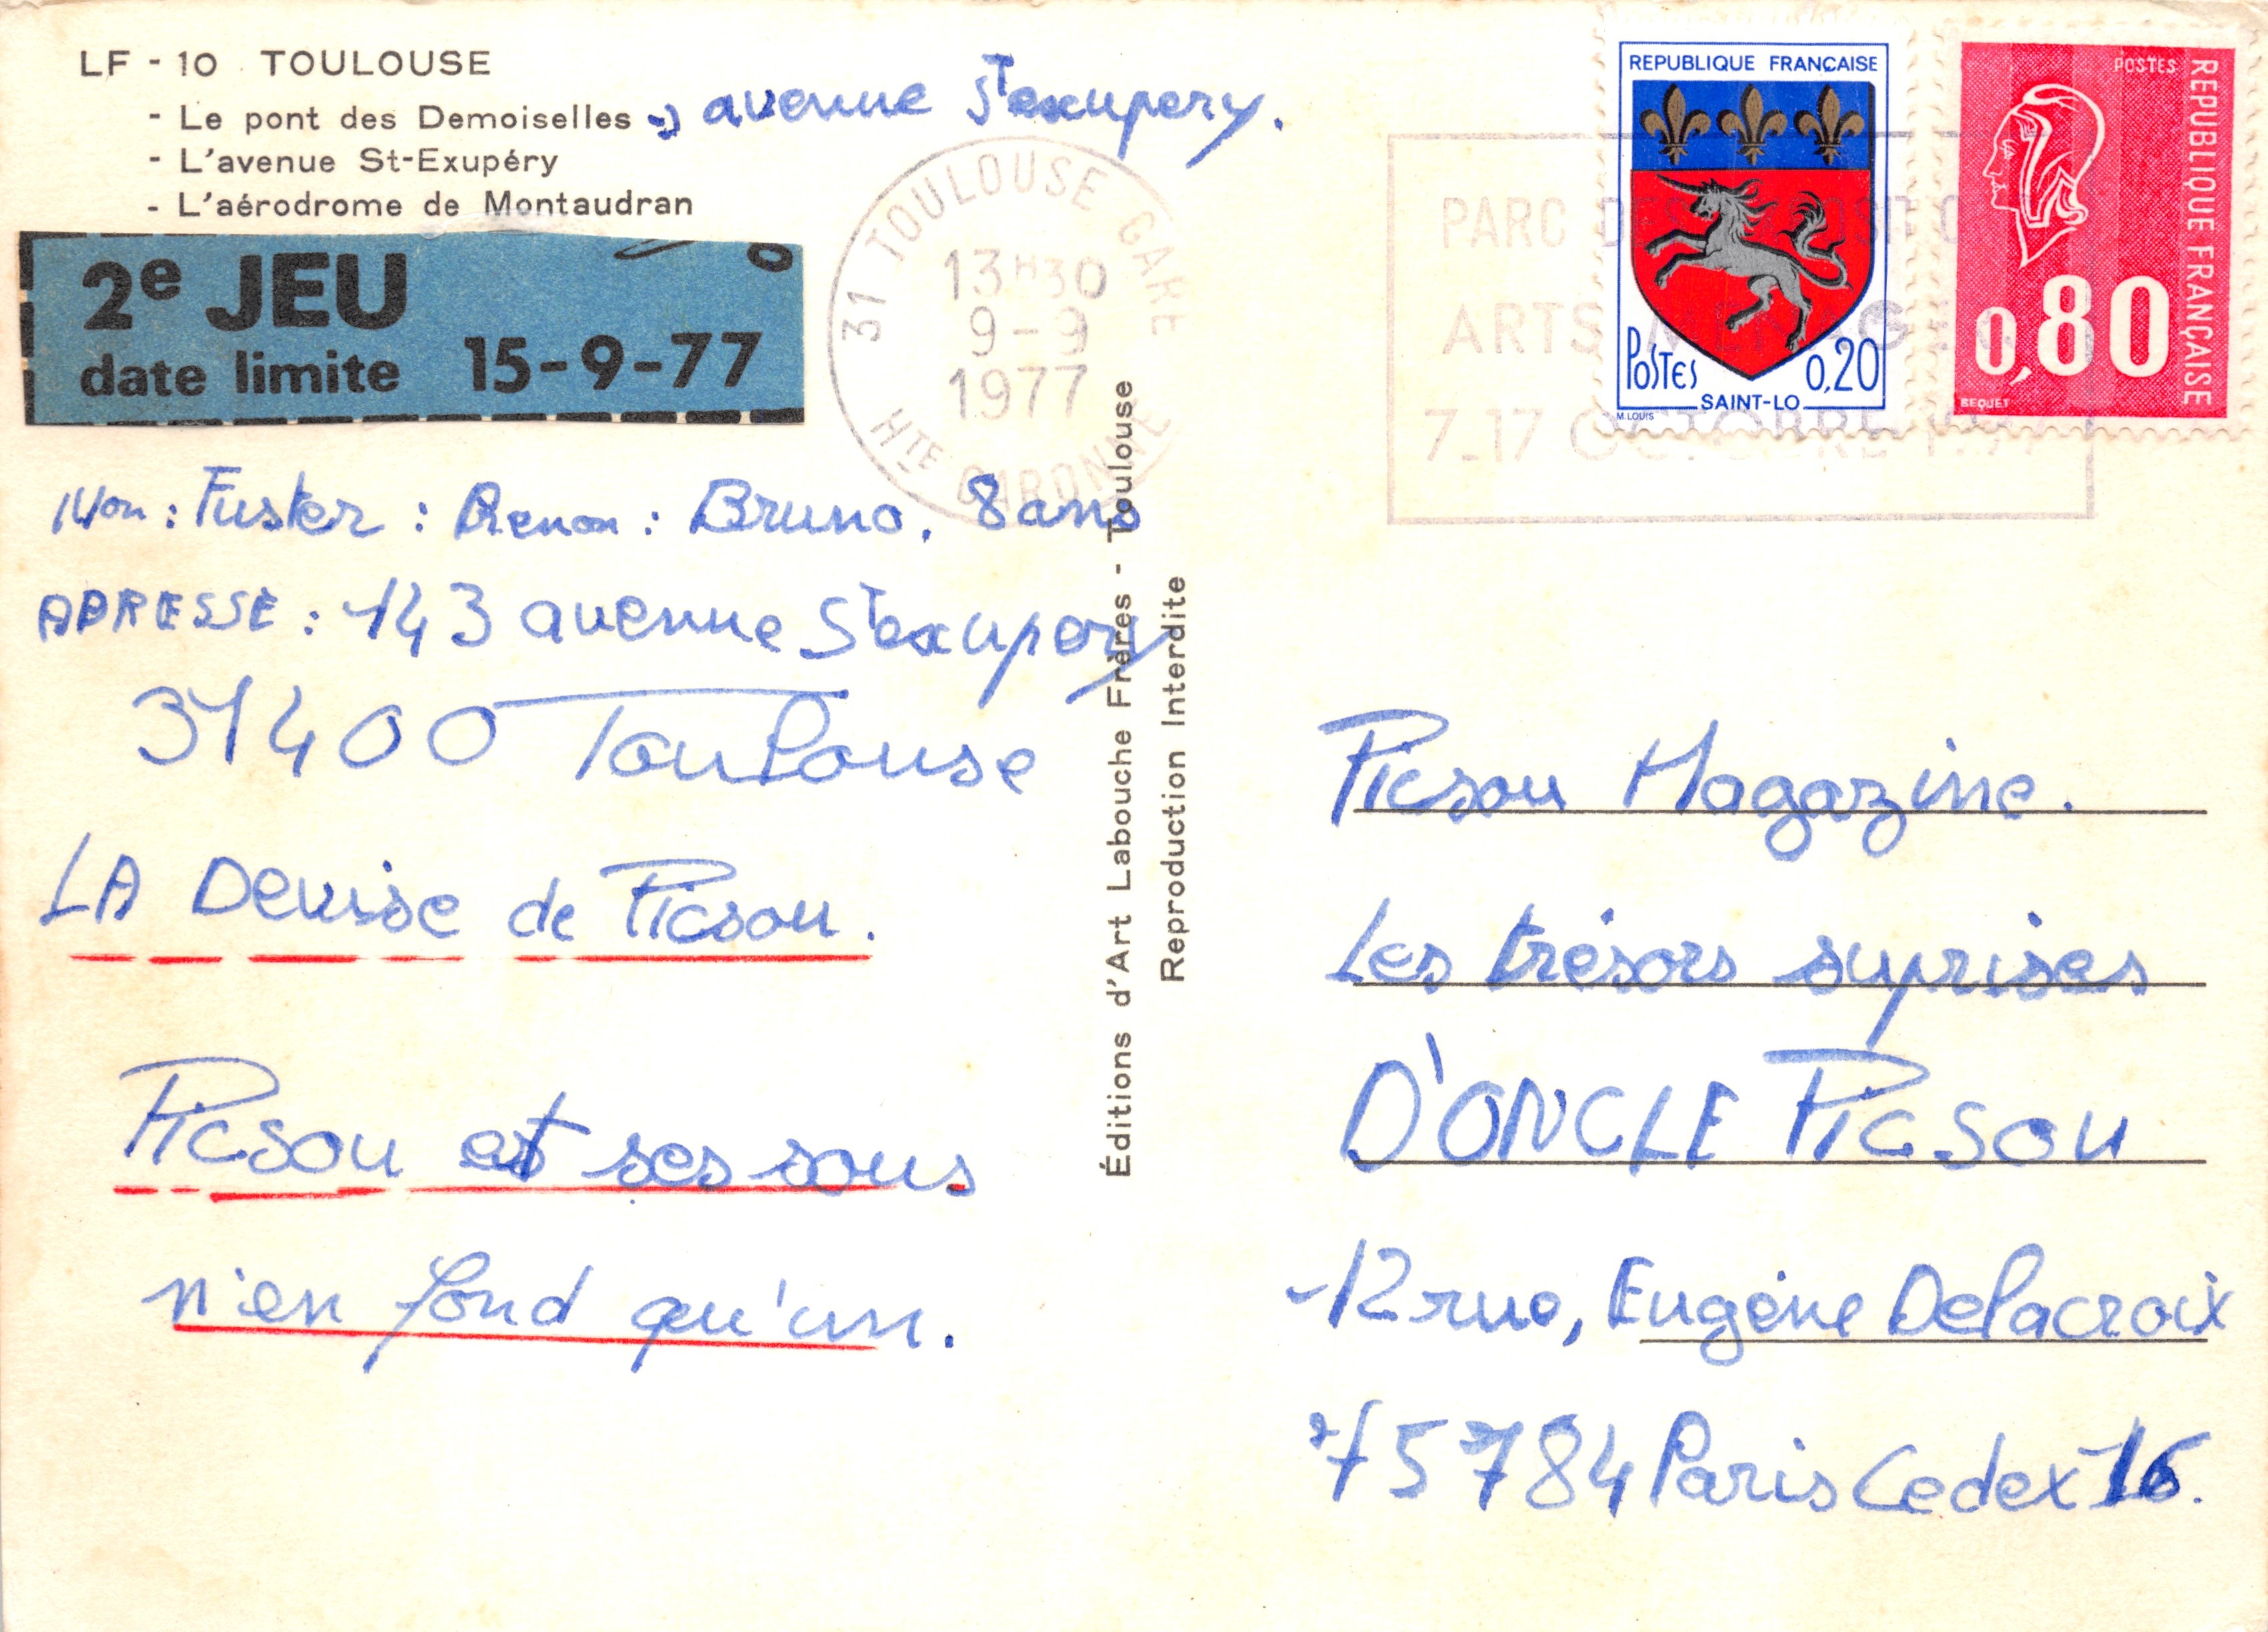 LF - 10 TOULOUSE
- Le pont des Demoiselles → avenue St exupery.
- L'avenue St-Exupéry
- L'aérodrome de Montaudran
2e JEU
date limite 15-9-77
31 TOULOUSE GARE
13H30
9-9
1977
HTE GARONNE
PARC
ARTS
7_17 OCTOBRE
REPUBLIQUE FRANÇAISE
POSTES 0,20
SAINT-LO
M. LOUIS
POSTES
REPUBLIQUE FRANÇAISE
0,80
BEQUET
Non : Fuster : Prenon : Bruno. 8 ans
ADRESSE : 143 avenue St exupery
31400 Toulouse
LA Devise de Picsou.
Picsou et ses sous
n'en fond qu'un.
Éditions d'Art Labouche Frères - Toulouse
Reproduction Interdite
Picsou Magazine.
Les trésors suprises
D'ONCLE PICSOU
12 rue, Eugène Delacroix
75784 Paris Cedex 16.